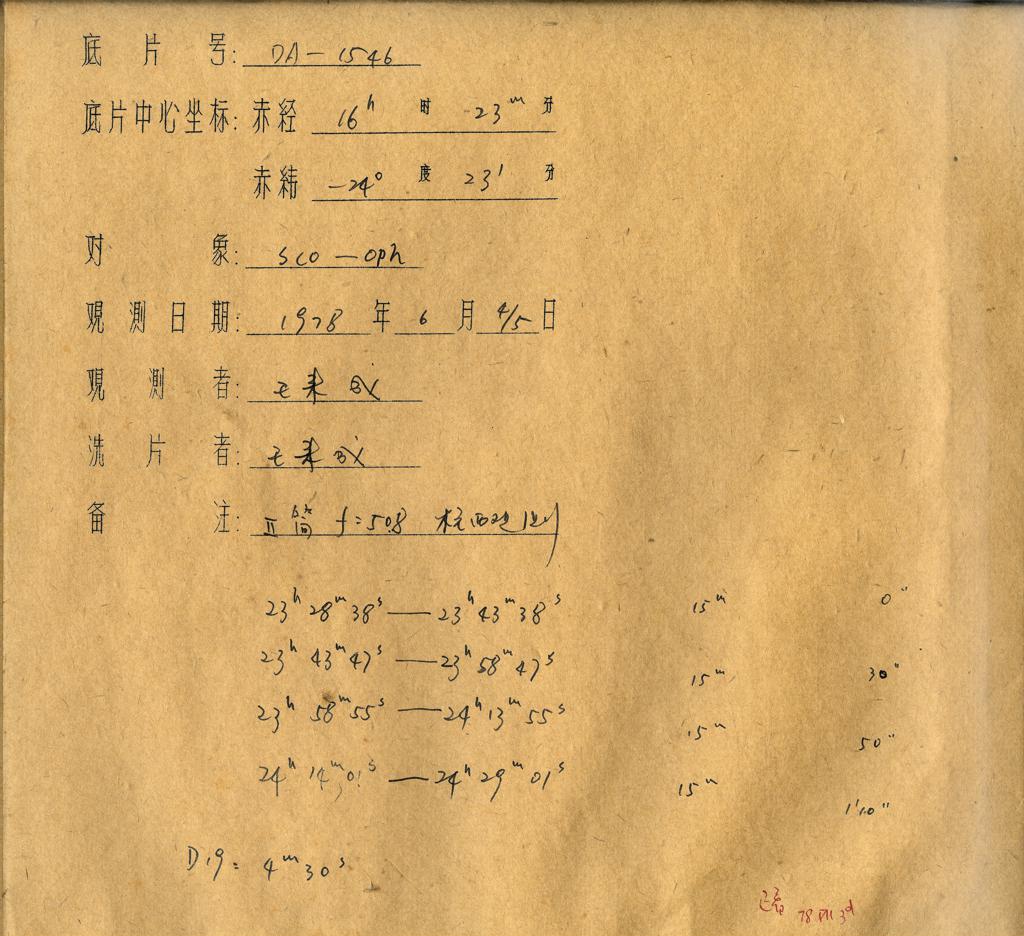 底片号: DA-1546
底片中心坐标: 赤经 16ʰ 时 23ᵐ 分
赤纬 -24° 度 23′ 分
对象: Sco-Oph
观测日期: 1978 年 6 月 4/5 日
观测者: 毛来成
洗片者: 毛来成
备注: II筒 f=508
23ʰ 28ᵐ 38ˢ — 23ʰ 43ᵐ 38ˢ 15ᵐ 0″
23ʰ 43ᵐ 47ˢ — 23ʰ 58ᵐ 47ˢ 15ᵐ 30″
23ʰ 58ᵐ 55ˢ — 24ʰ 13ᵐ 55ˢ 15ᵐ 50″
24ʰ 14ᵐ 01ˢ — 24ʰ 29ᵐ 01ˢ 15ᵐ 1′10″
D19: 4ᵐ 30ˢ